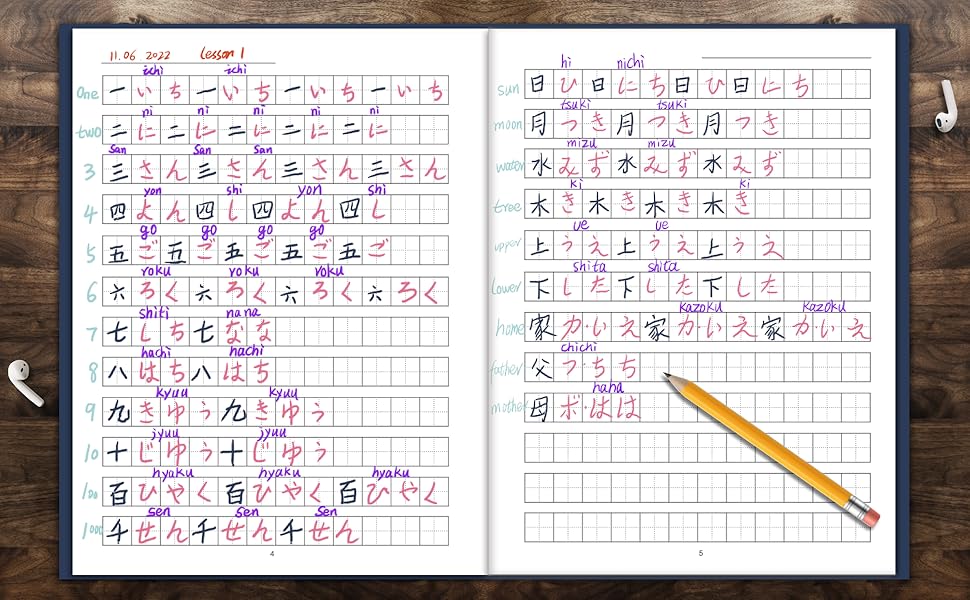 11.06 2022 Lesson 1
ichi ichi
one 一いち一いち一いち一いち
ni ni ni ni ni
two 二に二に二に二に二に
san san san
3 三さん三さん三さん三さん
yon shi yon shi
4 四よん四し四よん四し
go go go go
5 五ご五ご五ご五ご五ご
roku roku roku
6 六ろく六ろく六ろく六ろく
shiti nana
7 七しち七なな
hachi hachi
8 八はち八はち
kyuu kyuu
9 九きゆう九きゆう
jyuu jyuu
10 十じゆう十じゆう
hyaku hyaku hyaku
100 百ひやく百ひやく百ひやく
sen sen sen
1000 千せん千せん千せん
4
hi nichi
sun 日ひ日にち日ひ日にち
tsuki tsuki
moon 月つき月つき月つき
mizu mizu
water 水みず水みず水みず
ki ki
tree 木き木き木き木き
ue ue
upper 上うえ上うえ上うえ
shita shita
lower 下した下した下した
kazoku kazoku
home 家カ·いえ家カ·いえ家カ·いえ
chichi
father 父フ·ちち
haha
mother 母ボ·はは
5